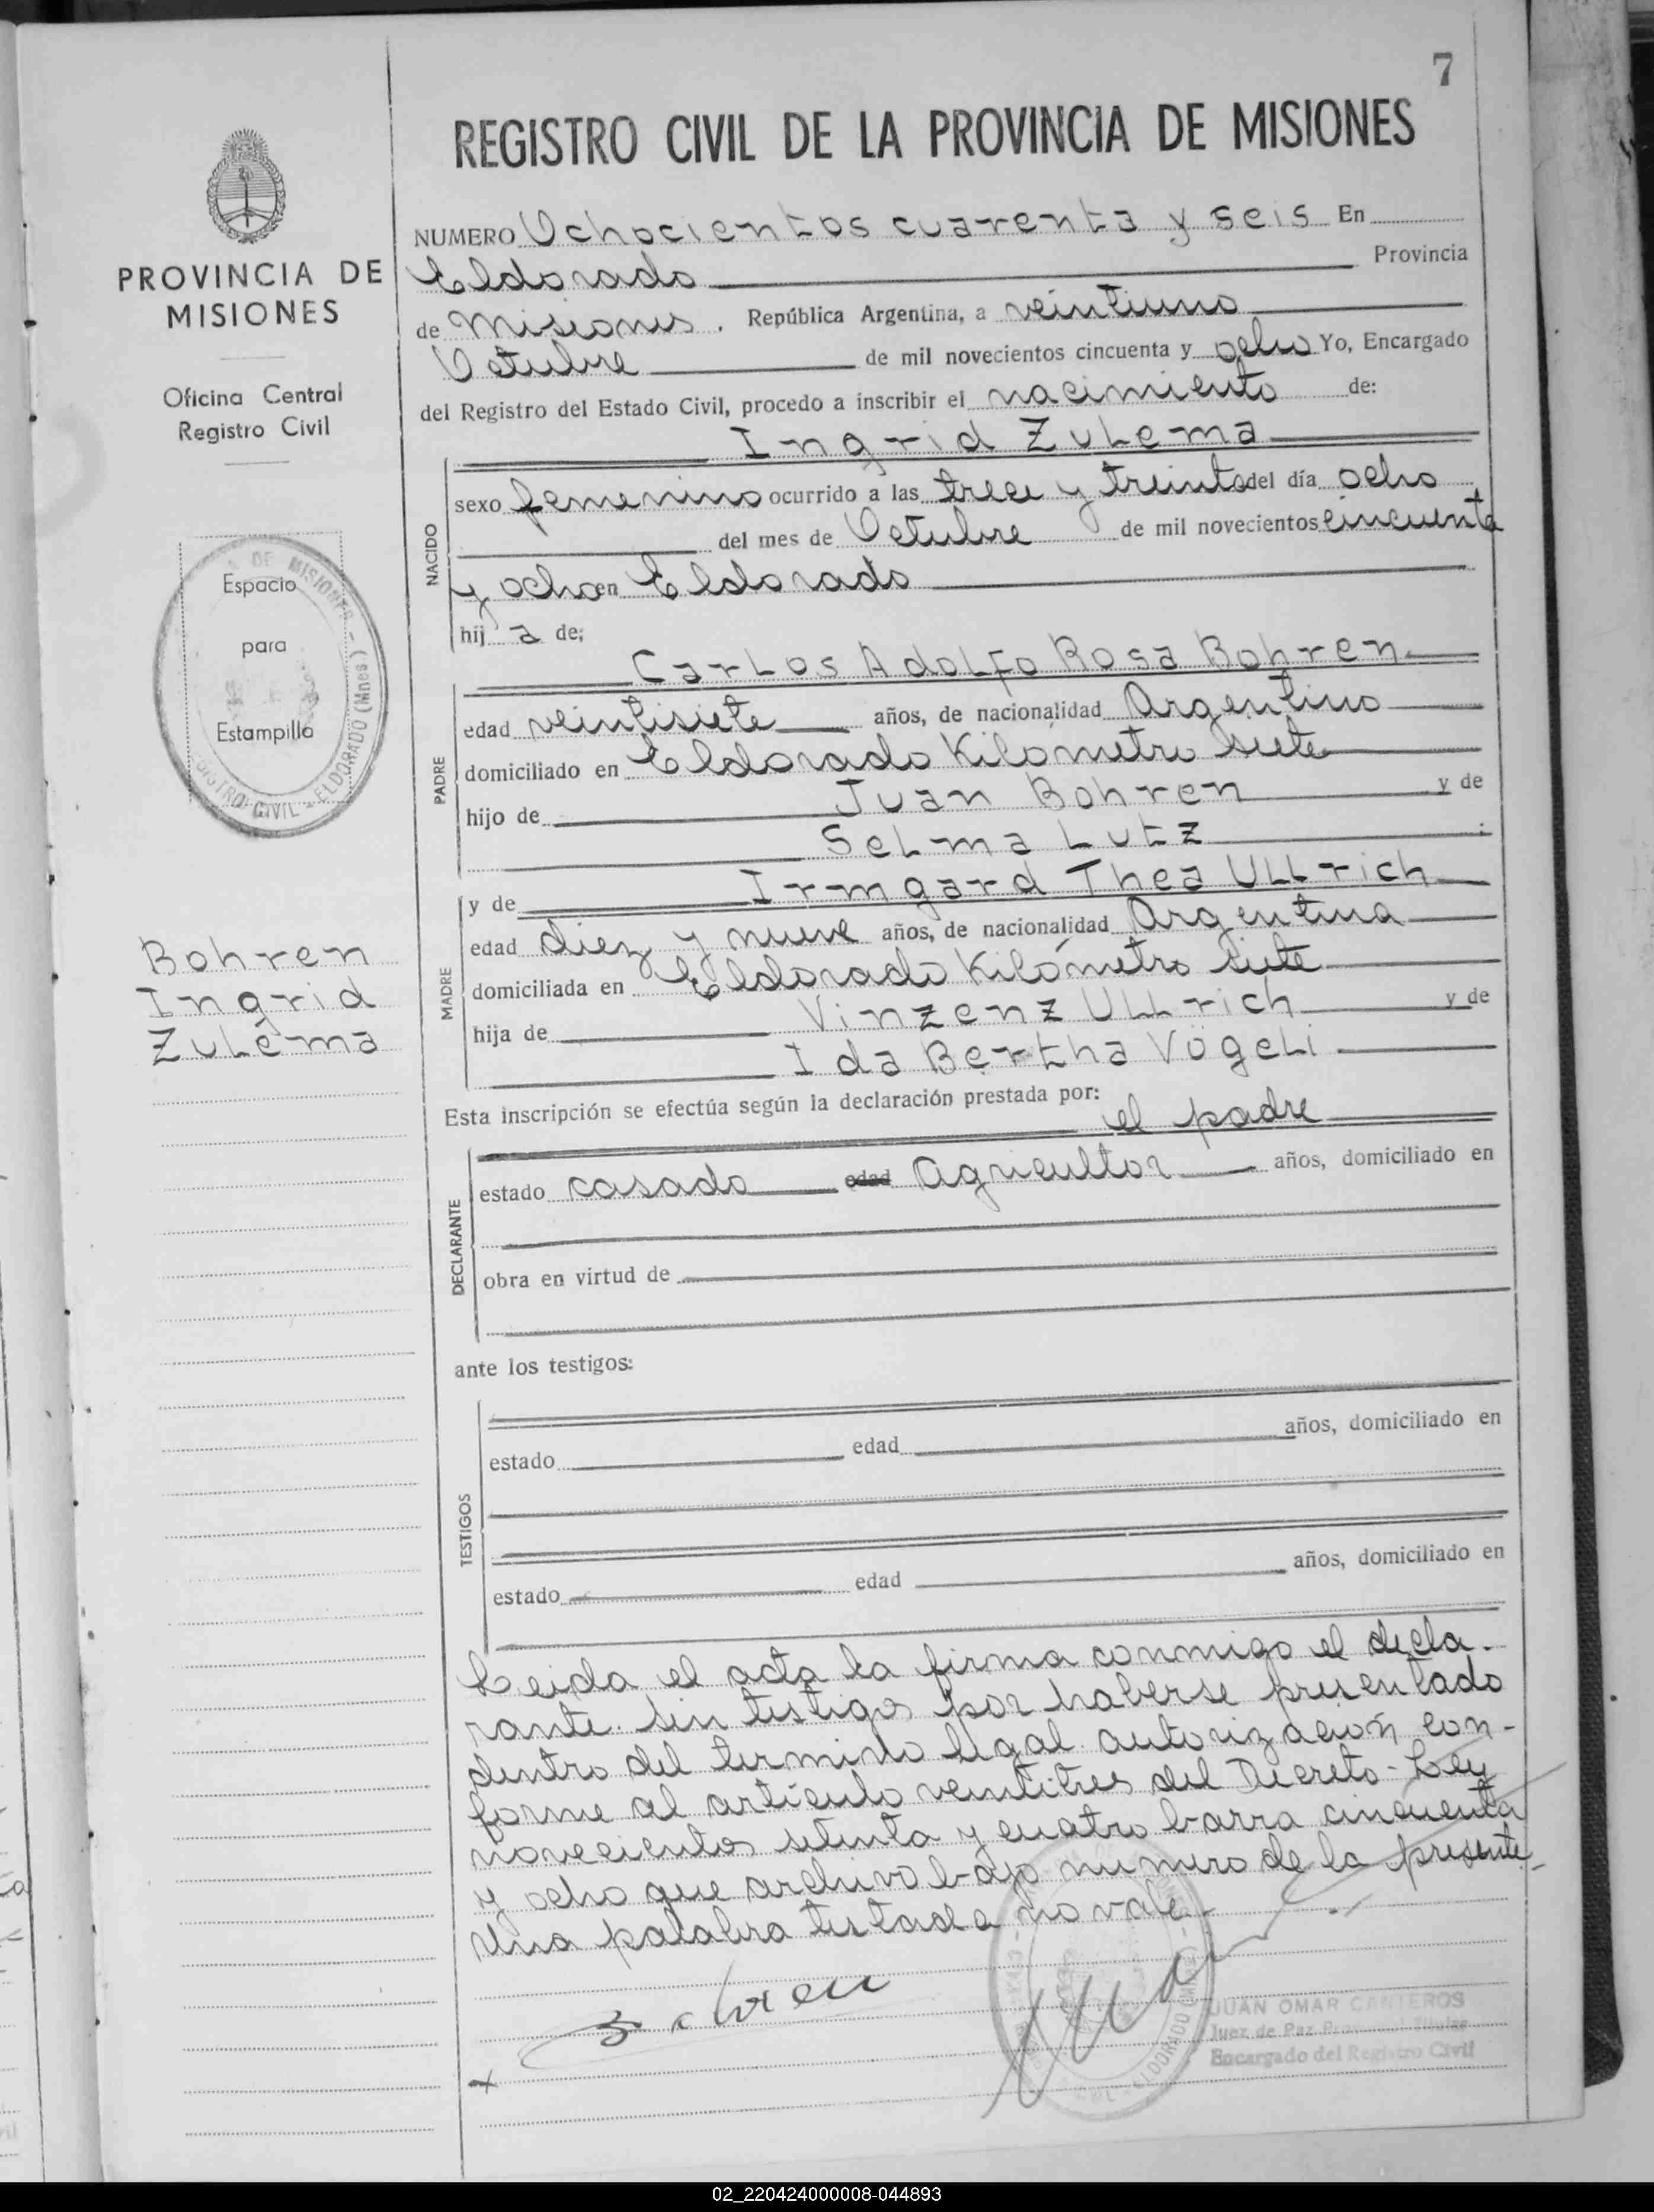 7
REGISTRO CIVIL DE LA PROVINCIA DE MISIONES
PROVINCIA DE
MISIONES
Oficina Central
Registro Civil
Espacio
para
Estampilla
DE MISIONES
REGISTRO CIVIL - ELDORADO (Mnes.) -
Bohren
Ingrid
Zulema
NUMERO Ochocientos cuarenta y seis En
Eldorado Provincia
de Misiones. República Argentina, a veintiuno
Octubre de mil novecientos cincuenta y ocho Yo, Encargado
del Registro del Estado Civil, procedo a inscribir el nacimiento de:
Ingrid Zulema
NACIDO
sexo femenino ocurrido a las trece y treinta del día ocho
del mes de Octubre de mil novecientos cincuenta
y ocho en Eldorado
hij a de;
Carlos Adolfo Rosa Bohren
PADRE
edad veintisiete años, de nacionalidad Argentino
domiciliado en Eldorado Kilómetro siete
hijo de Juan Bohren y de
Selma Lutz
MADRE
y de Irmgard Thea Ullrich
edad diez y nueve años, de nacionalidad Argentina
domiciliada en Eldorado Kilómetro siete
hija de Vinzenz Ullrich y de
Ida Bertha Vögeli
Esta inscripción se efectúa según la declaración prestada por:
el padre
DECLARANTE
estado casado edad Agricultor años, domiciliado en
obra en virtud de
ante los testigos:
TESTIGOS
estado edad años, domiciliado en
estado edad años, domiciliado en
Leida el acta la firma conmigo el decla-
rante. Sin testigos por haberse presentado
dentro del termino legal autorización con-
forme al artículo veintitres del Decreto-Ley
novecientos setenta y cuatro barra cincuenta
y ocho que archivo bajo numero de la presente-
Una palabra testada no vale-
Bohren
JUAN OMAR CANTEROS
Juez de Paz Titular
Encargado del Registro Civil
02_220424000008-044893